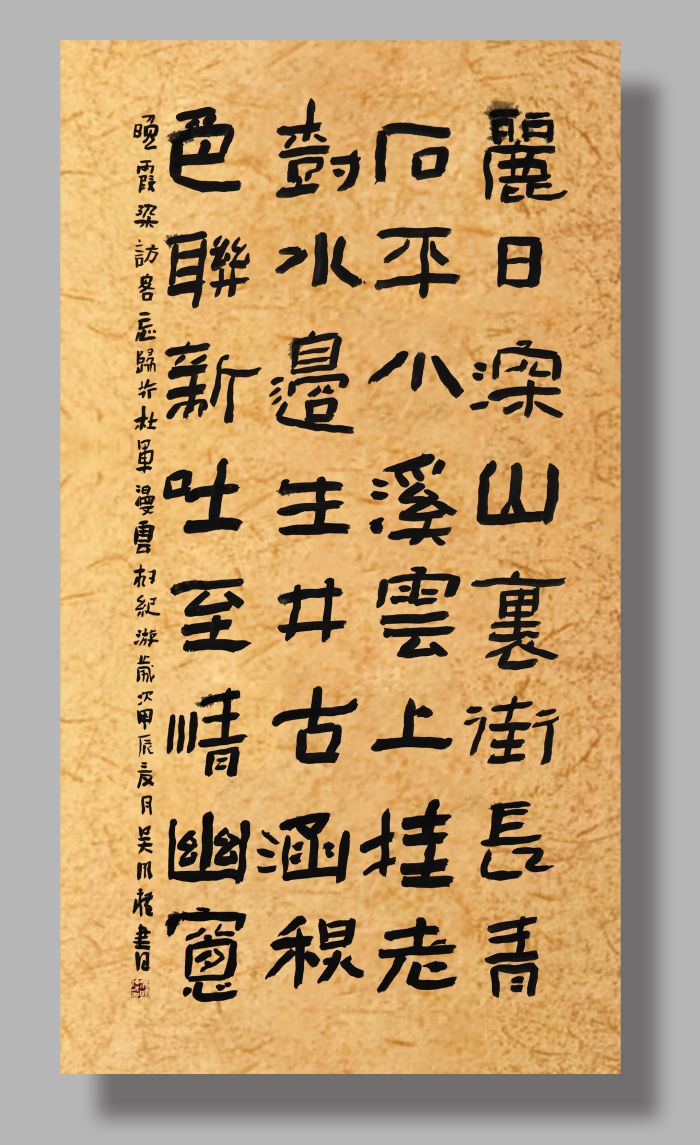 麗日深山裏街長青
石平小溪雲上挂老
樹水邊生井古涵秋
色聯新吐至情幽窻
晚霞染訪客忘歸行杜單漫雲村紀游歲次甲辰夏月吳書